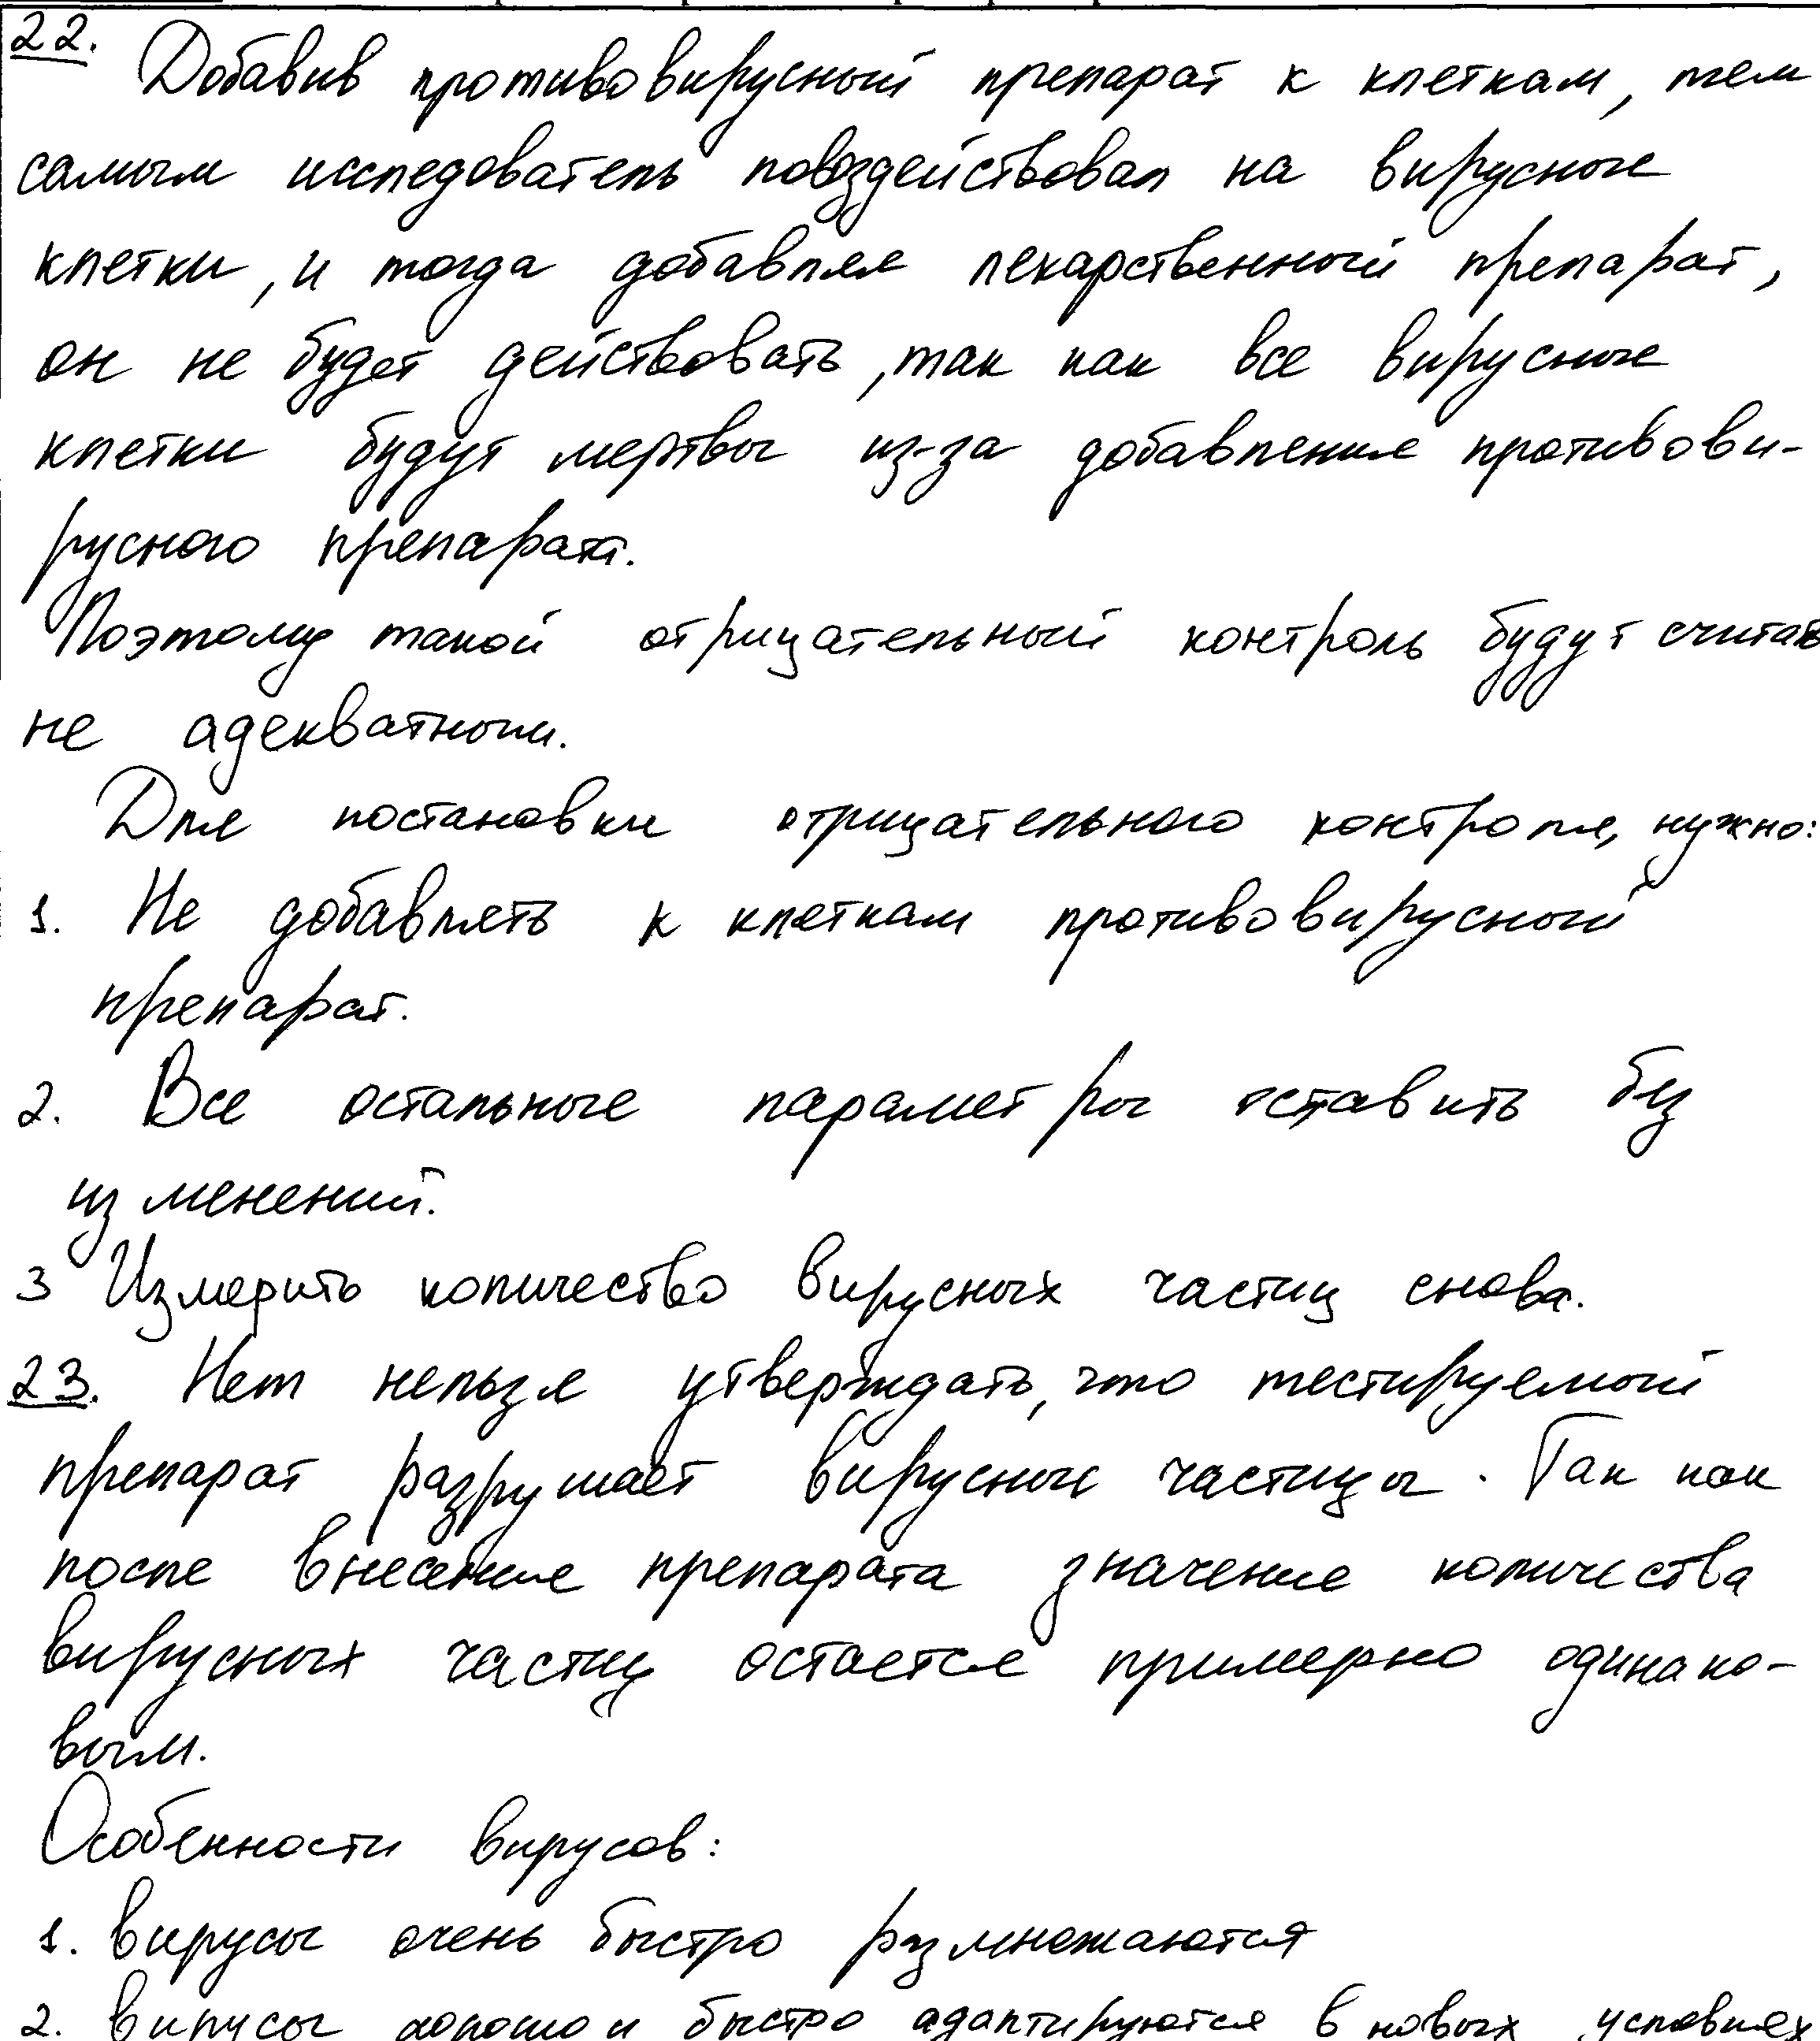 22. Добавив противовирусный препарат к клеткам, тем
самым исследователь повоздействовал на вирусные
клетки, и тогда добавляя лекарственный препарат,
он не будет действовать, так как все вирусные
клетки будут мертвы из-за добавления противови-
русного препарата.
Поэтому такой отрицательный контроль будут считать
не адекватным.
Для постановки отрицательного контроля, нужно:
1. Не добавлять к клеткам противовирусный
препарат.
2. Все остальные параметры оставить без
изменений.
3 Измерить количество вирусных частиц снова.
23. Нет нельзя утверждать, что тестируемый
препарат разрушает вирусные частицы. Так как
после внесения препарата значение количества
вирусных частиц остается примерно одинако-
вым.
Особенности вирусов:
1. вирусы очень быстро размножаются
2. вирусы хорошо и быстро адаптируются в новых условиях